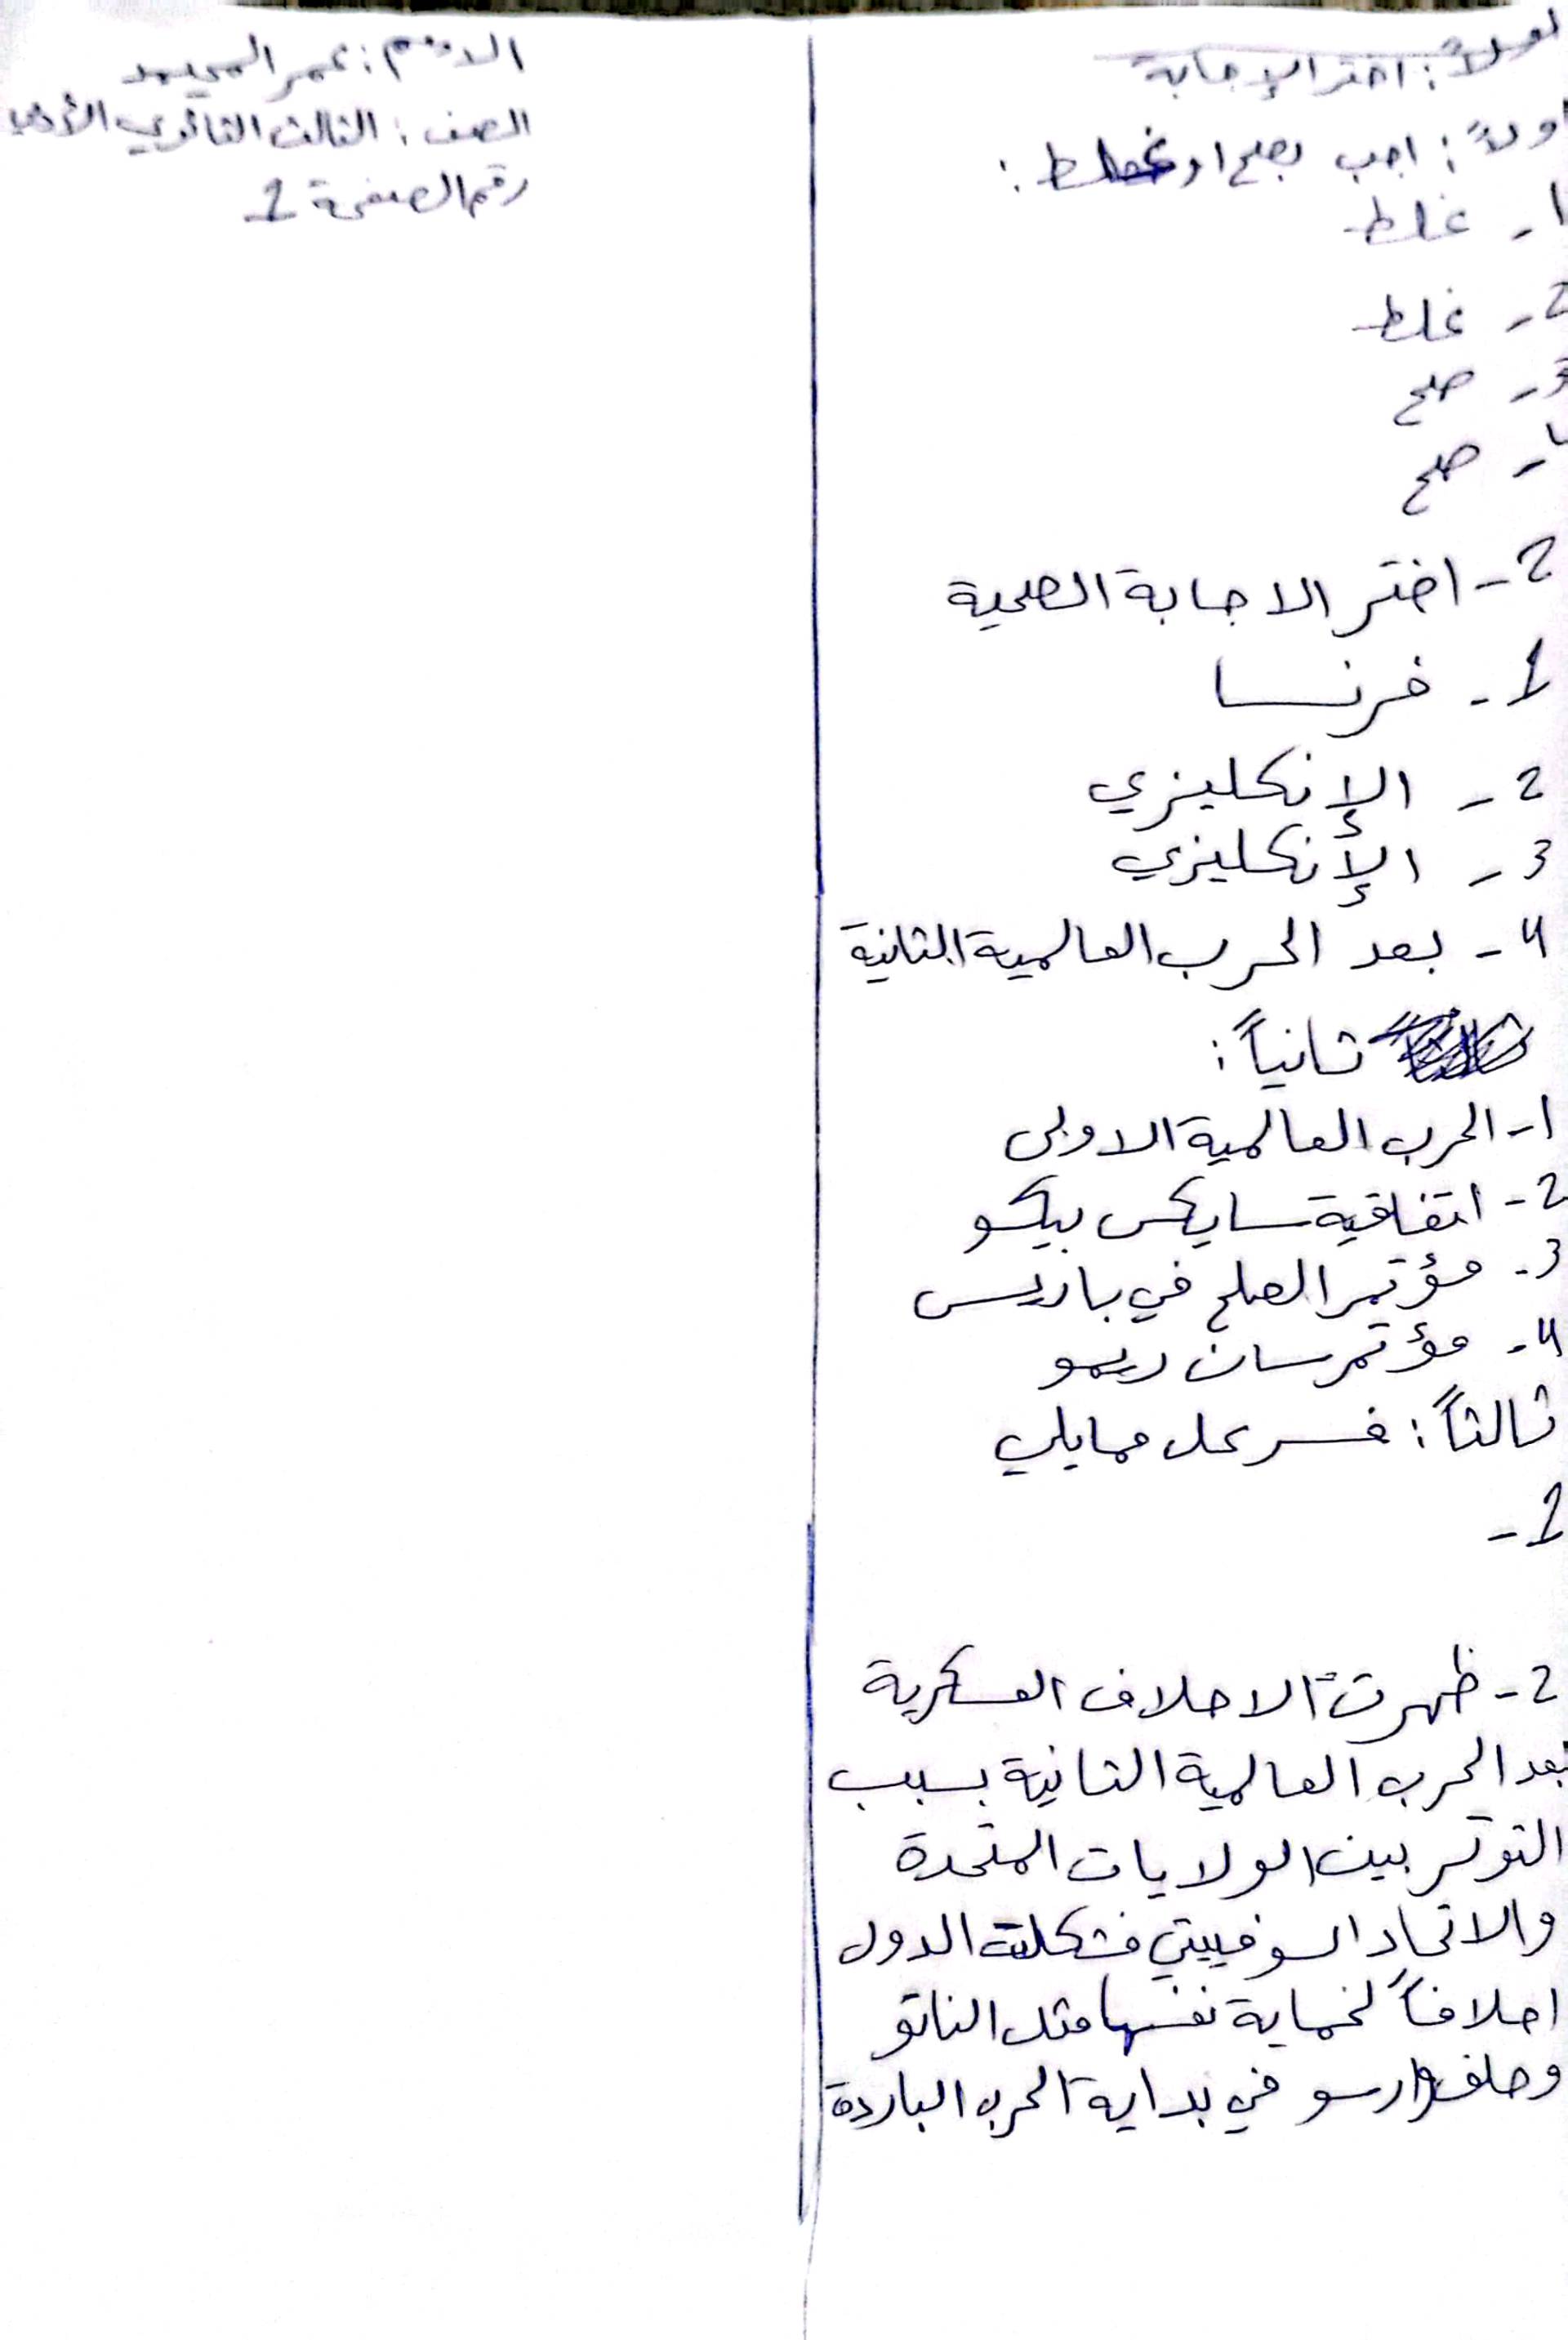 الاسم: عمر المحيمد
الصف: الثالث الثانوي الأدبي
رقم الصفحة 1
اولاً: اختر الإجابة
اولاً: اجب بصح او غلط:
1- غلط
2- غلط
3- صح
4- صح
2- اختر الاجابة الصحية
1- فرنسا
2- الإنكليزي
3- الإنكليزي
4- بعد الحرب العالمية الثانية
ثانياً:
1- الحرب العالمية الاولى
2- اتفاقية سايكس بيكو
3- مؤتمر الصلح في باريس
4- مؤتمر سان ريمو
ثالثاً: فسر كل ممايلي
1-
2- ظهرت الاحلاف العسكرية
بعد الحرب العالمية الثانية بسبب
التوتر بين الولايات المتحدة
والاتحاد السوفييتي فشكلت الدول
احلافاً لحماية نفسها مثل الناتو
وحلف وارسو في بداية الحرب الباردة